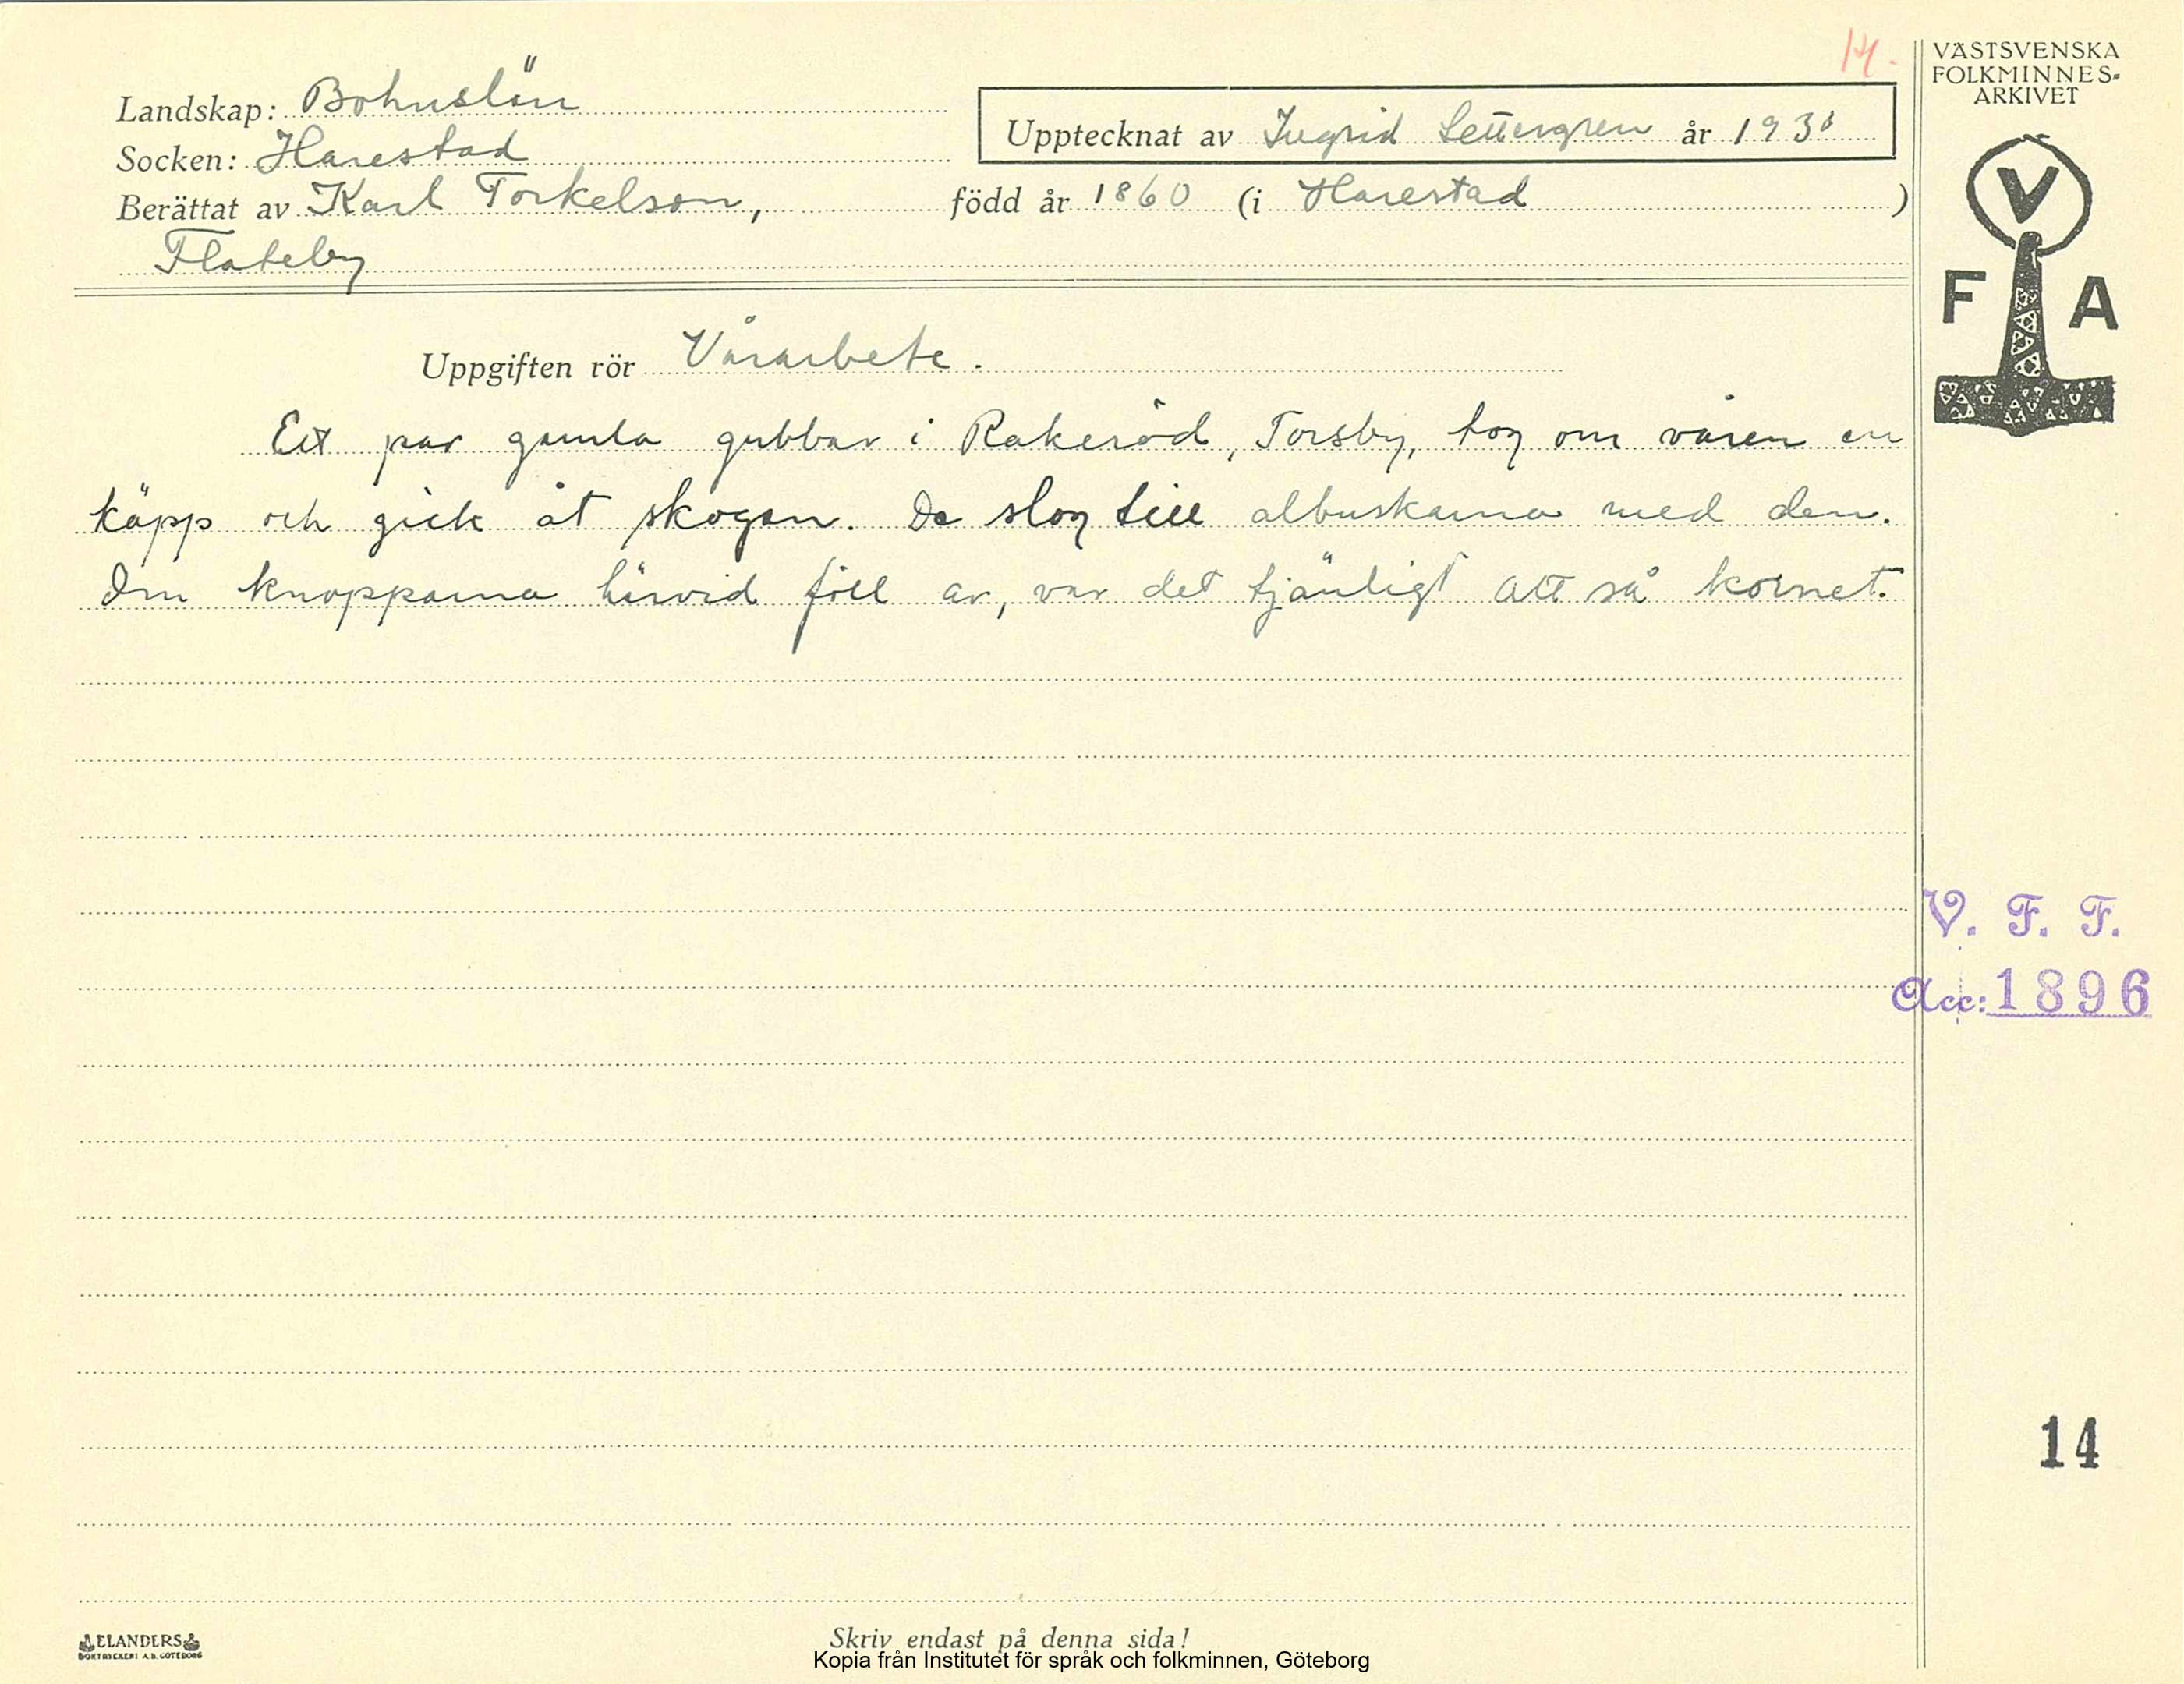 14.
VÄSTSVENSKA
FOLKMINNES-
ARKIVET
Landskap: Bohuslän
Upptecknat av Ingrid Settergren år 193
Socken: Harestad
Berättat av Karl Torkelson, född år 1860 (i Harestad )
Flateby
V
F A
Uppgiften rör Vårarbete.
Ett par gamla gubbar i Rakeröd, Torsby, tog om våren en
käpp och gick åt skogen. De slog till albuskarna med den.
Om knopparna härvid föll av, var det tjänligt att så kornet.
V. F. F.
Acc: 1896
14
ELANDERS
BOKTRYCKERI A.B. GÖTEBORG
Skriv endast på denna sida!
Kopia från Institutet för språk och folkminnen, Göteborg